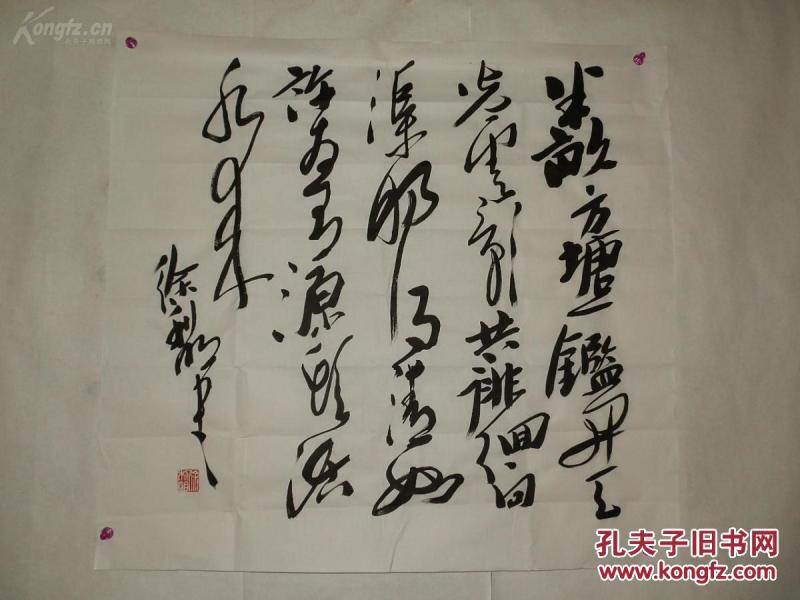 半畝方塘一鑑開天
光雲影共徘徊問
渠那得清如
許為有源頭活
水來
徐
Kongfz.cn
孔夫子旧书网
孔夫子旧书网
www.kongfz.com